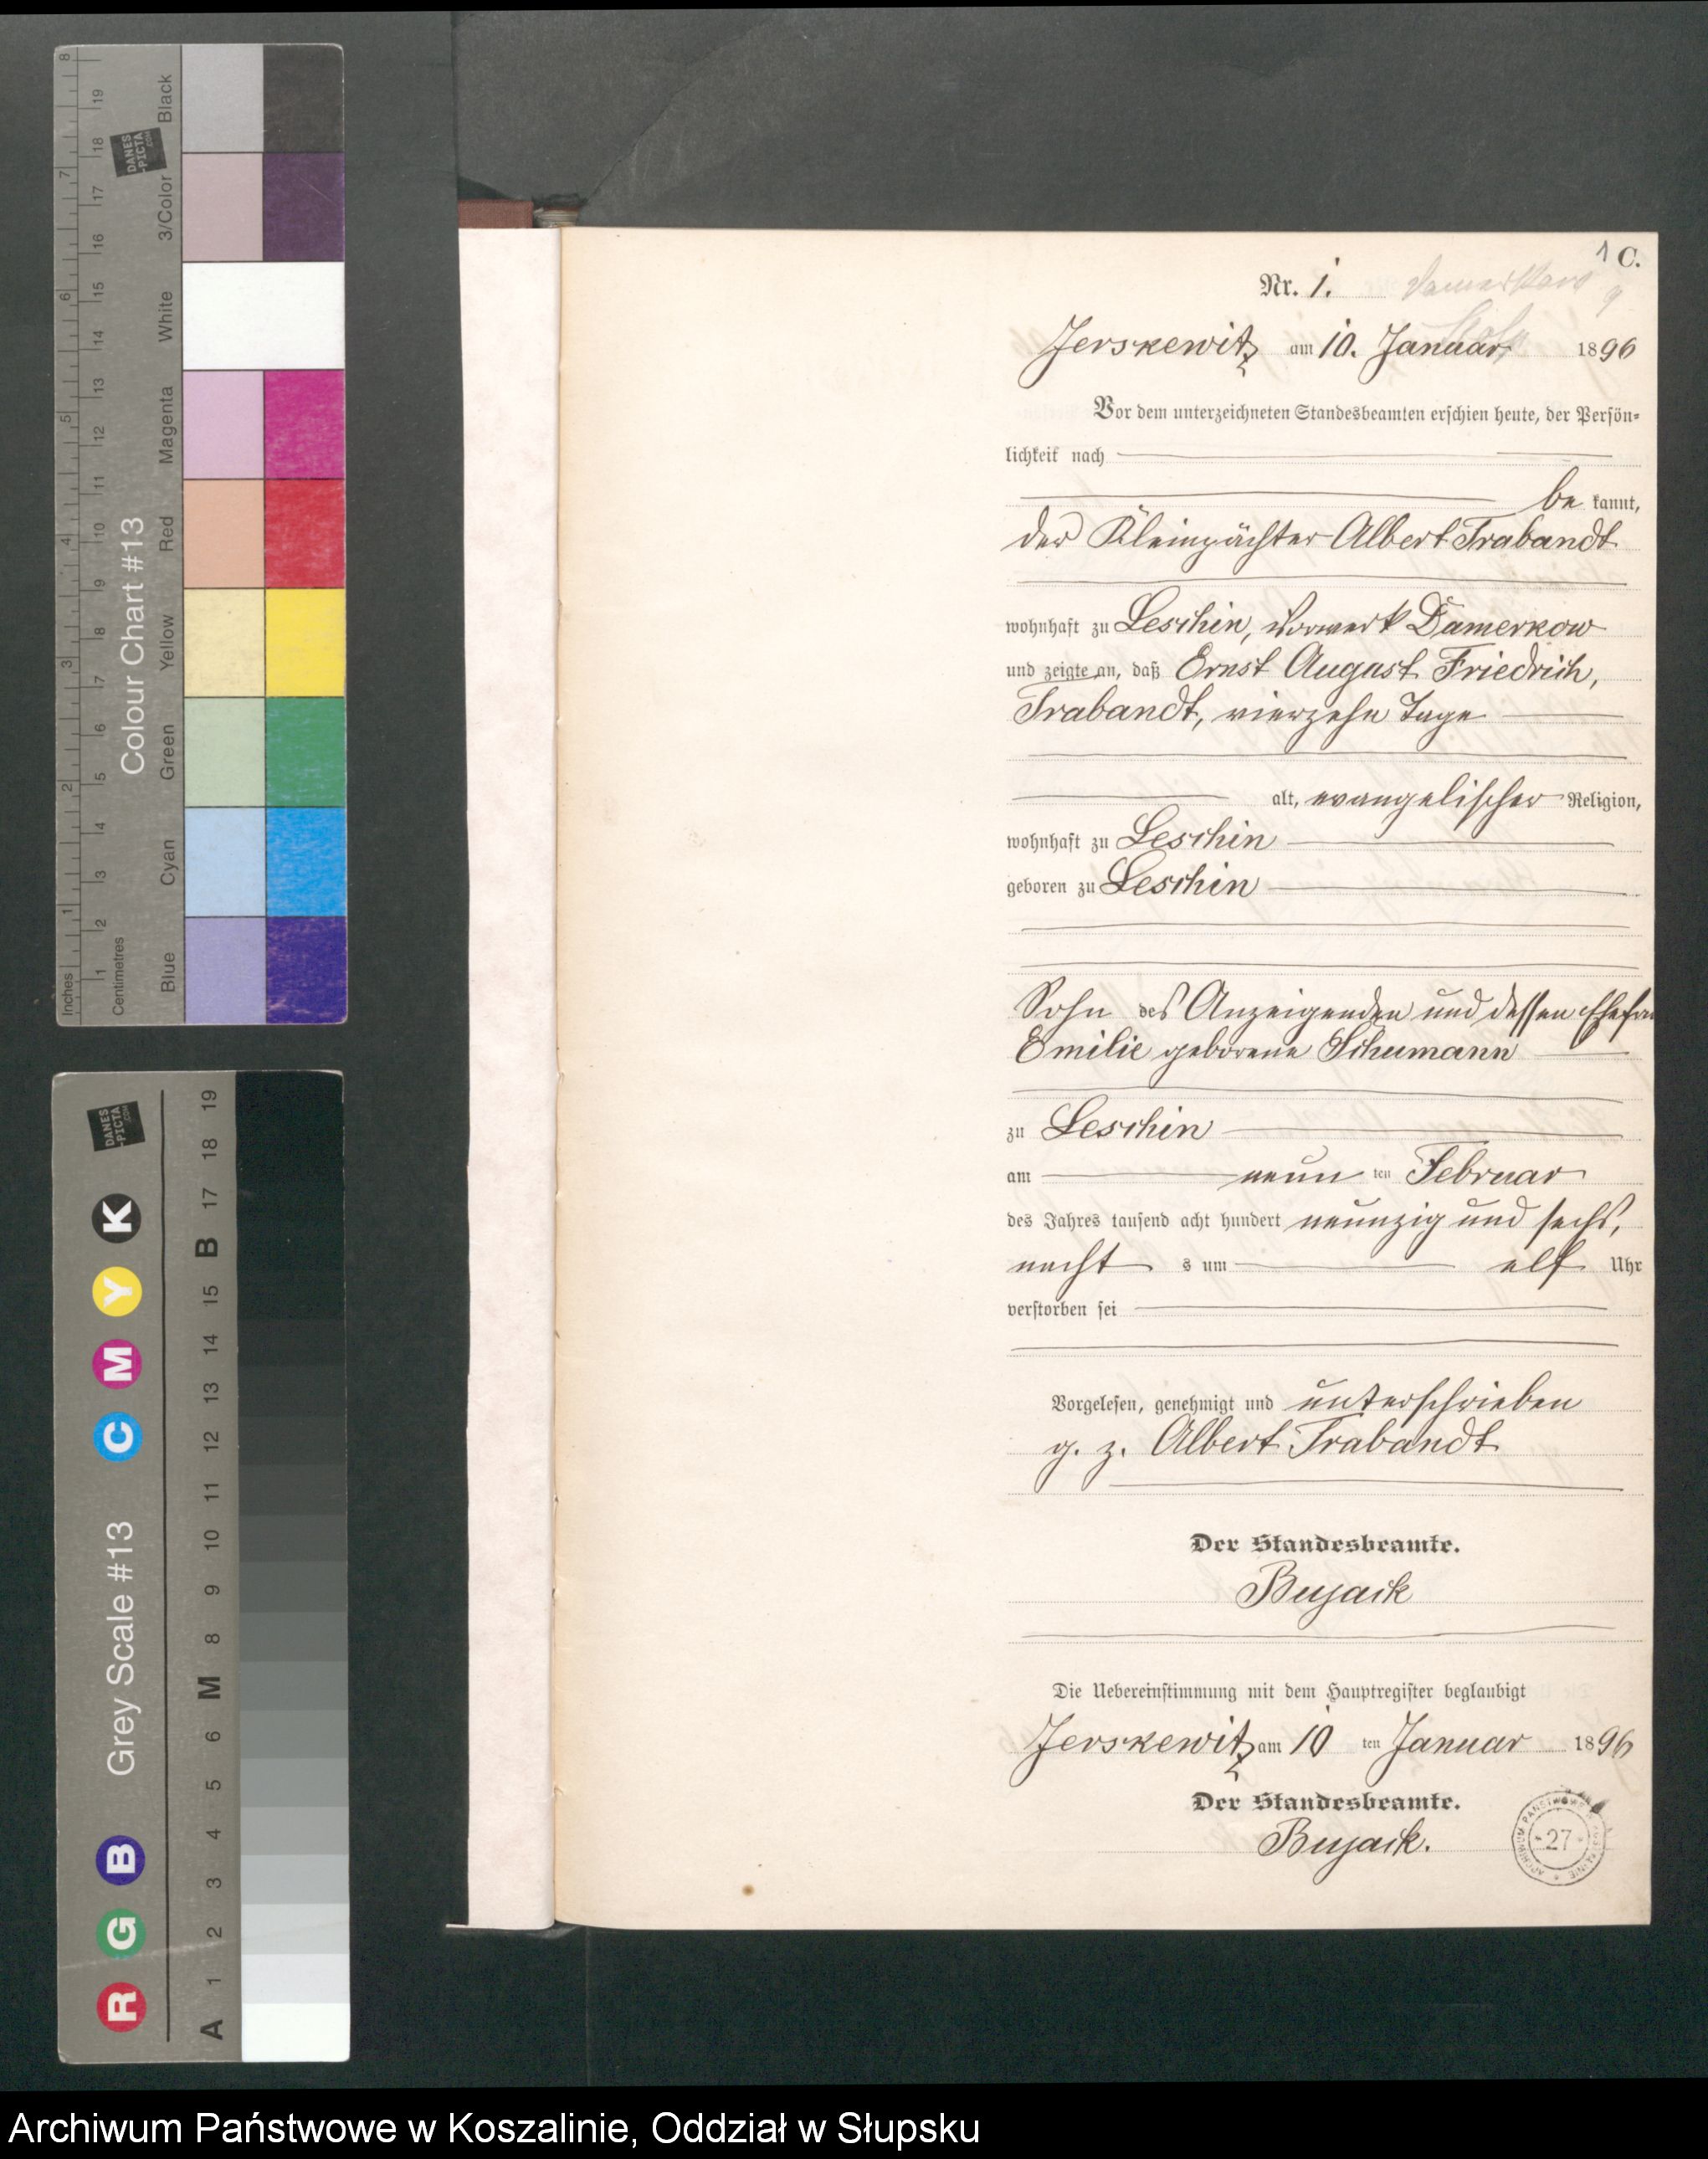 8
19
18
7
17
16
6
15
14
13
5
12
11
4
10
9
8
3
7
6
2
5
4
3
1
2
1
Inches
Centimetres
Colour Chart #13
Black
3/Color
White
Magenta
Red
Yellow
Green
Cyan
Blue
DANES
-PICTA
.COM
DANES
-PICTA
.COM
Grey Scale #13
R G B
C M Y K
A 1 2 3 4 5 6 M 8 9 10 11 12 13 14 15 B 17 18 19
1 C.
Nr. 1. Damerkow
Jerskewitz am 10. Januar 1896
Vor dem unterzeichneten Standesbeamten erschien heute, der Persön-
lichkeit nach
be kannt,
der Kleinpächter Albert Trabandt
wohnhaft zu Leschin, Vorwerk Damerkow
und zeigte an, daß Ernst August Friedrich,
Trabandt, vierzehn Tage
alt, evangelischer Religion,
wohnhaft zu Leschin
geboren zu Leschin
Sohn des Anzeigenden und dessen Ehefrau
Emilie geborene Schumann
zu Leschin
am neun ten Februar
des Jahres tausend acht hundert neunzig und sechs,
nacht s um elf Uhr
verstorben sei
Vorgelesen, genehmigt und unterschrieben
g. z. Albert Trabandt
Der Standesbeamte.
Bujack
Die Uebereinstimmung mit dem Hauptregister beglaubigt
Jerskewitz am 10 ten Januar 1896
Der Standesbeamte.
Bujack.
27
Archiwum Państwowe w Koszalinie, Oddział w Słupsku